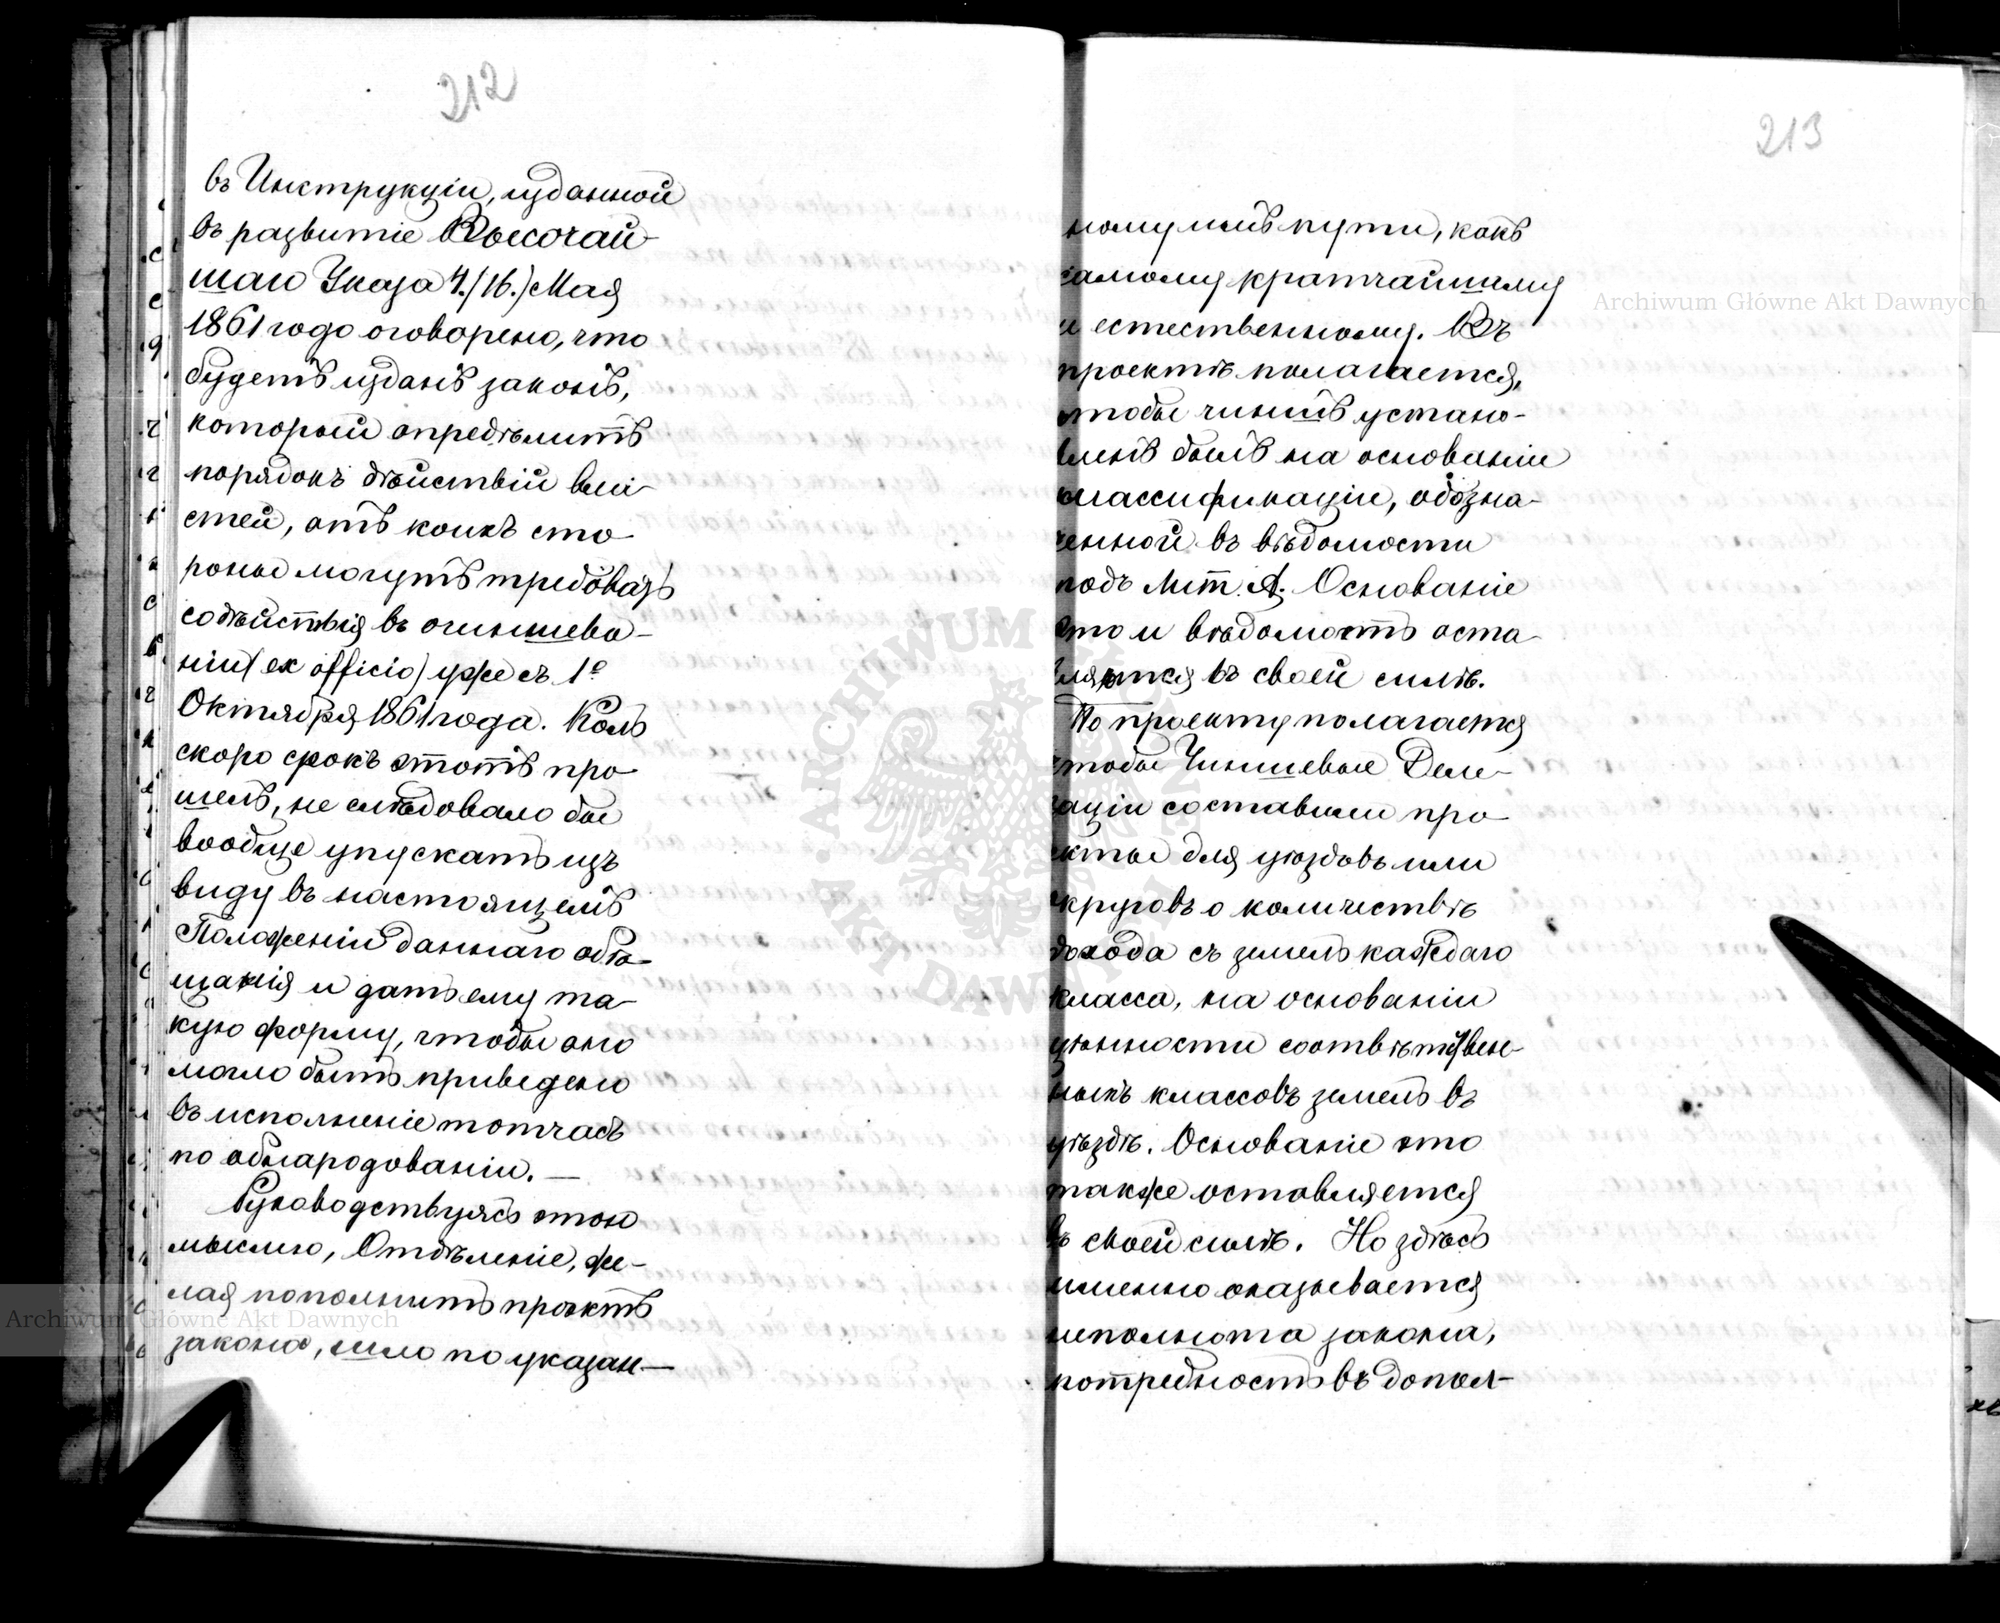 212
въ Инструкціи, изданной
въ развитіе Высочай-
шаго Указа 4./16./ Мая
1861 года оговорено, что
будетъ изданъ законъ,
который опредѣлитъ
порядокъ дѣйствій вла-
стей, отъ коихъ сто-
роны могутъ требовать
содѣйствія въ очиншева-
ніи/ex officio/ уже съ 1го
Октября 1861 года. Коль
скоро срокъ этотъ про-
шелъ, не слѣдовало бы
вообще упускать изъ
виду въ настоящемъ
Положеніи даннаго обѣ-
щанія и дать ему та-
кую форму, чтобы оно
могло быть приведено
въ исполненіе тотчасъ
по обнародованіи. —
Руководствуясь этою
мыслію, Отдѣленіе, же-
лая пополнить проектъ
закона, шло по указан-
213
ному имъ пути, какъ
самому кратчайшему
и естественному. Въ
проектѣ полагается,
чтобы чиншъ устано-
вленъ былъ на основаніи
классификаціи, обозна-
ченной въ вѣдомости
подъ Лит. А. Основаніе
это и вѣдомость оста-
вляются въ своей силѣ.
По проекту полагается
чтобы Чиншевые Деле-
гаціи составили про-
екты для уѣздовъ или
округовъ о количествѣ
дохода съ земель каждаго
класса, на основаніи
цѣнности соотвѣтствен-
ныхъ классовъ земель въ
уѣздѣ. Основаніе это
также оставляется
въ своей силѣ. Но здѣсь
именно оказывается
неполнота закона,
потребность въ допол-
Archiwum Główne Akt Dawnych
Archiwum Główne Akt Dawnych